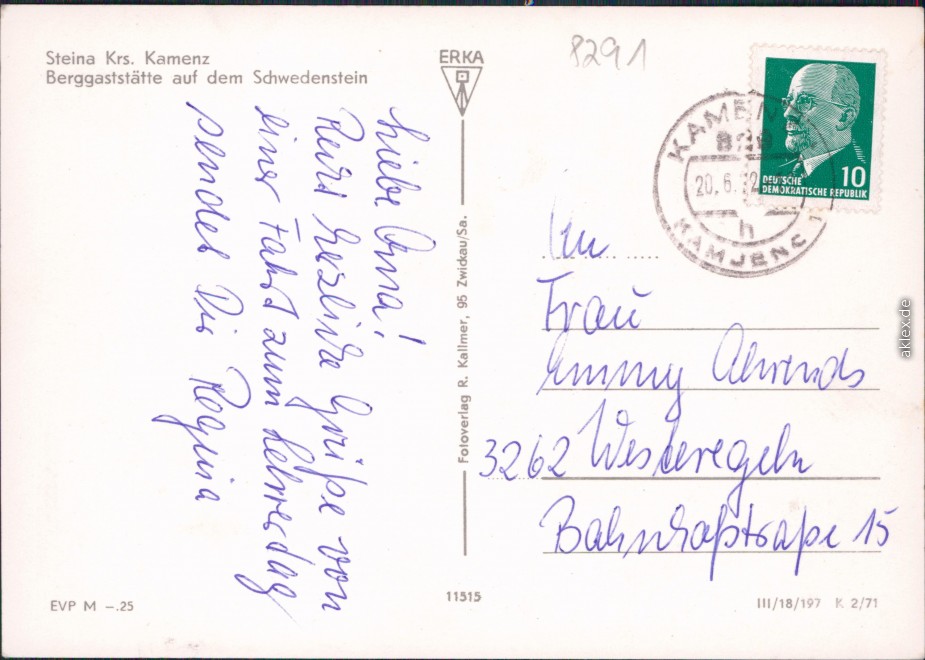 Steina Krs. Kamenz
Berggaststätte auf dem Schwedenstein
ERKA
8291
DEUTSCHE
DEMOKRATISCHE REPUBLIK
10
KAMENZ
829
20. 6. 72
h
KAMJENC
1
Liebe Oma!
Recht herzliche Grüße von
einer Fahrt zum Lehrerdag
sendet Dir Regina
Fotoverlag R. Kallmer, 95 Zwickau/Sa.
An
Frau
Emmy Ahrends
3262 Westeregeln
Bahnhofstraße 15
EVP M –.25
11515
III/18/197 K 2/71
aklex.de